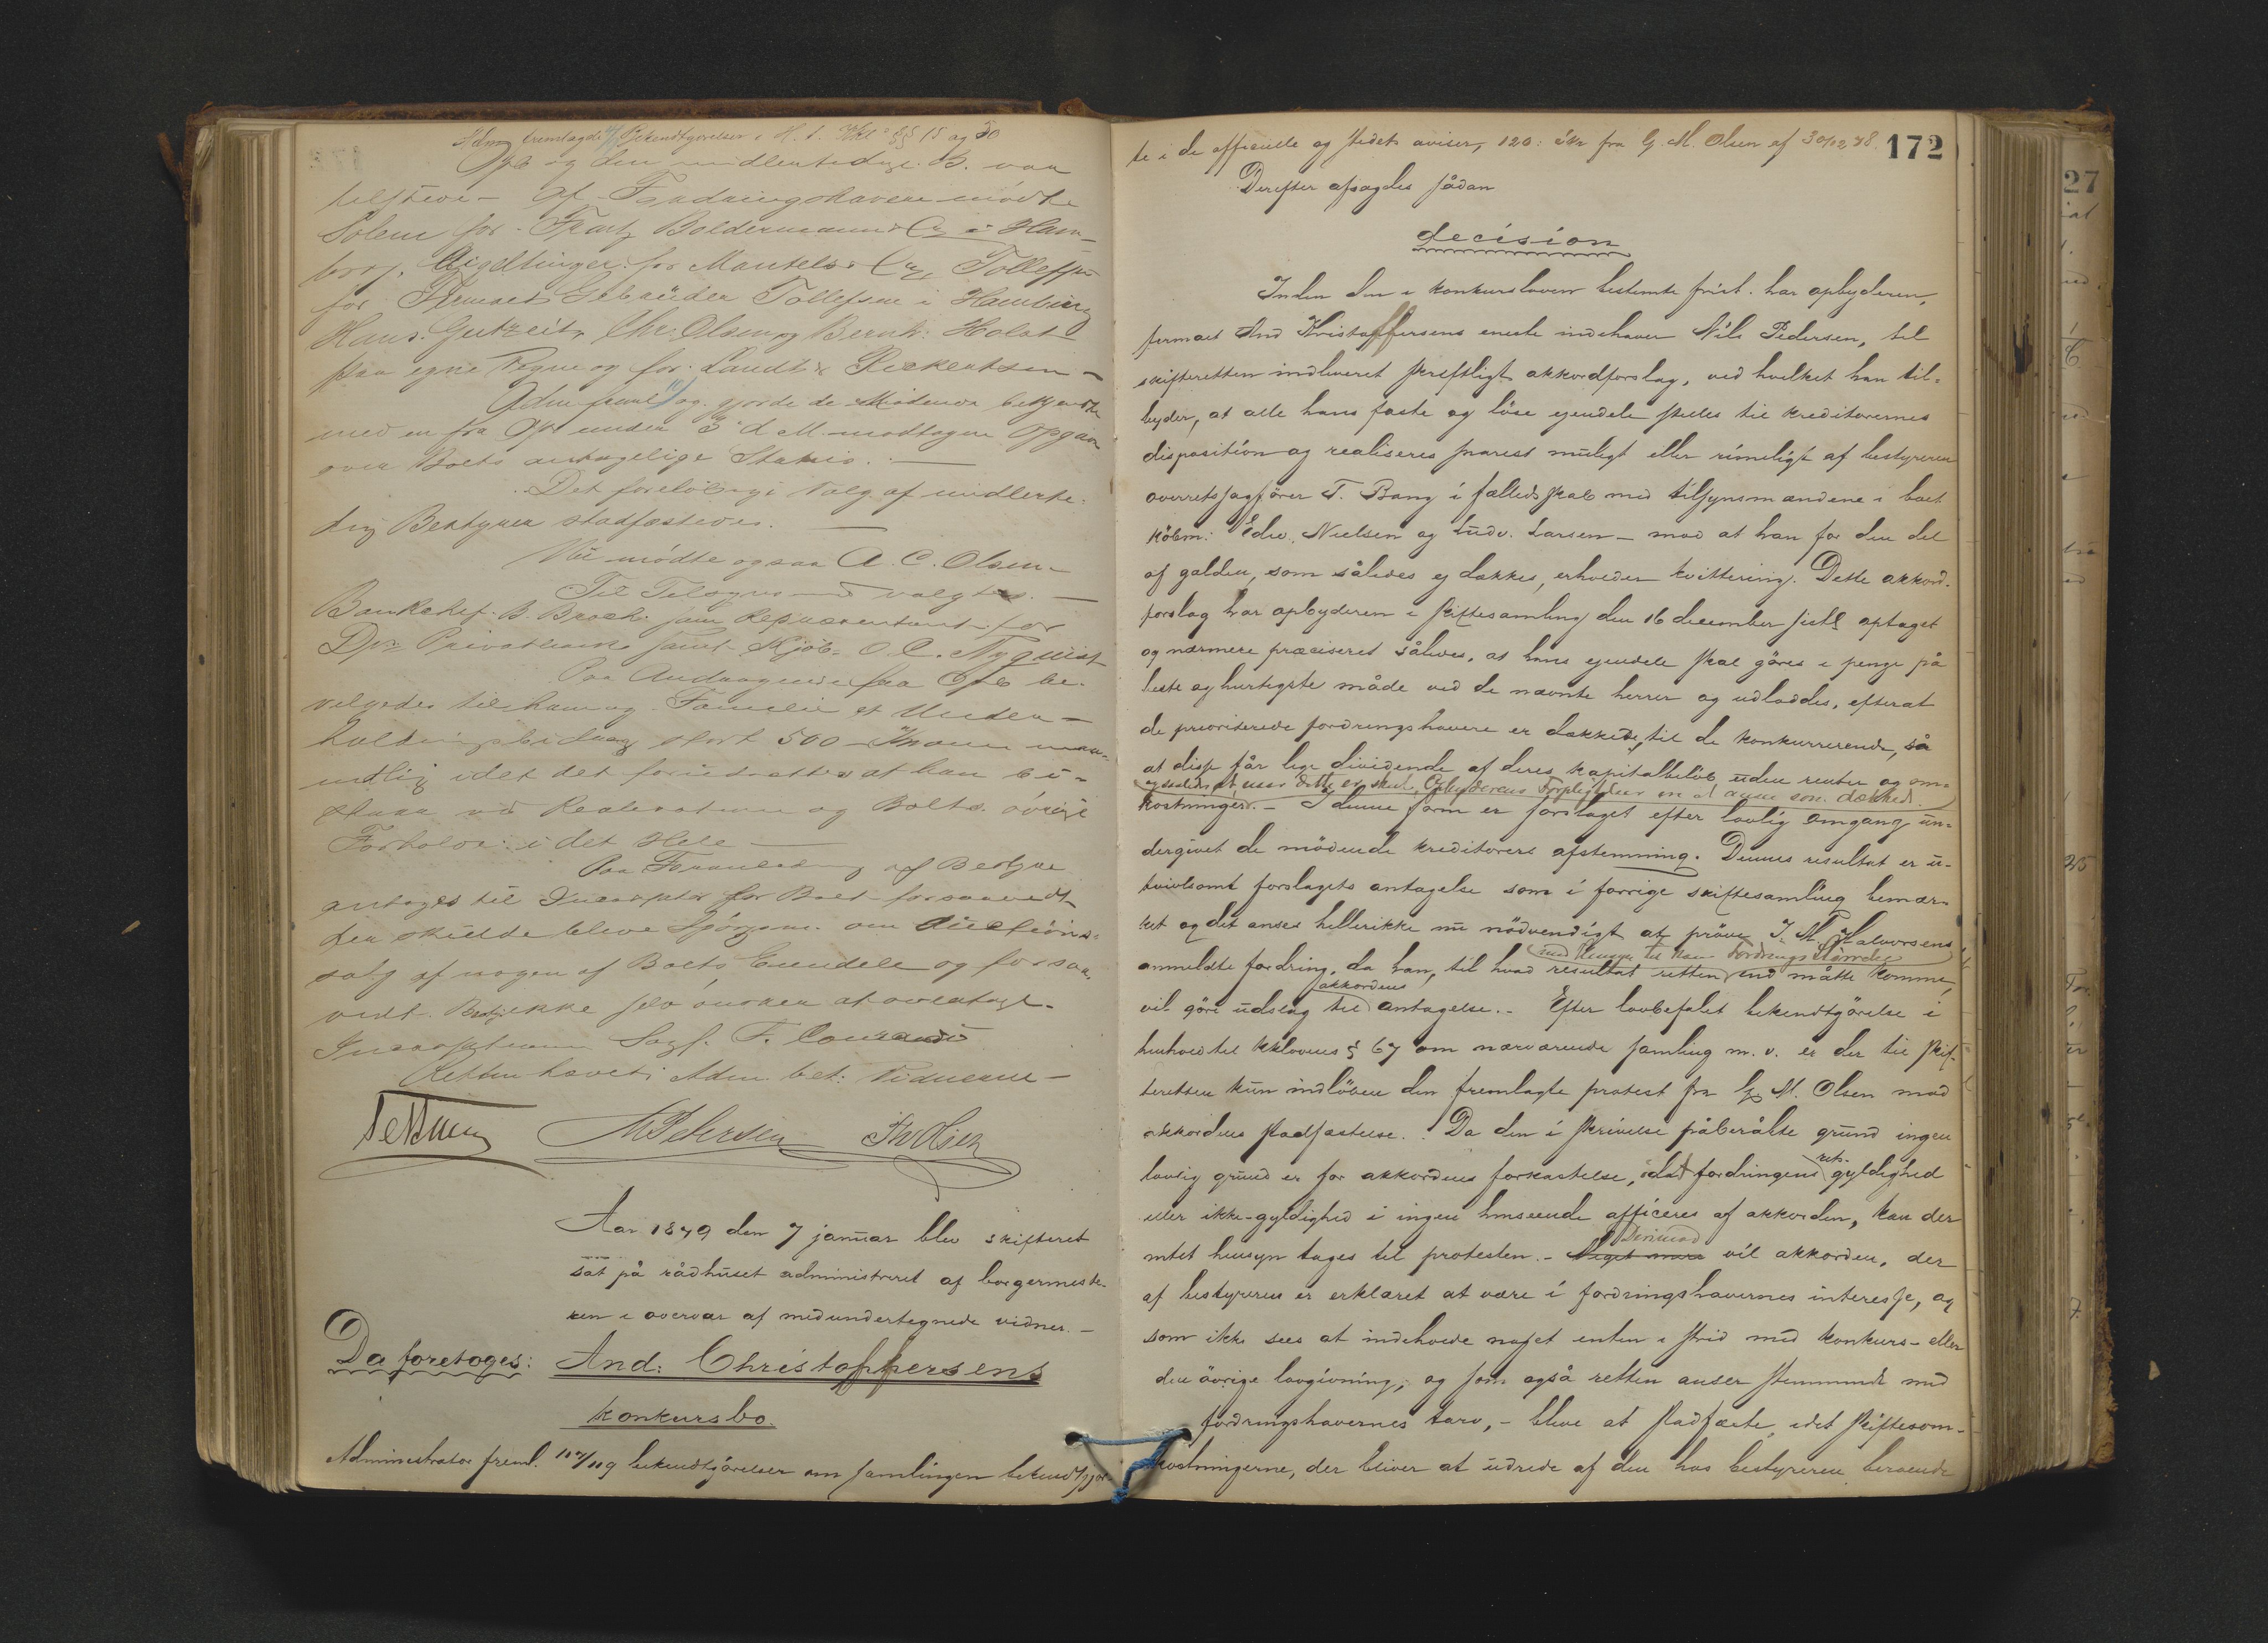 Adm fremlagde Bekendtgjørelser i H. t. Kkl's §§ 15 og 50
Opb og den midlertidige B. var
tilstede – Af Fordringshavere mødte
Solem for Frantz Boldermann & Co i Ham-
borg, for Mantels & Co, Tollefsen
for Firmaet Gebrüder Tollefsen i Hamburg
Hans Gutzeit, Chr. Olsen og Bernh. Holst
paa egne Vegne og for Landt & Rickertsen –
Adm freml og gjorde de Mødende bekjendte
med en fra Opb under 3 d M modtagen Opgave
over Boets antagelige Status. —
Det foreløbige Valg af midlerti-
dig Bestyrer stadfæstedes. —
Nu mødte ogsaa A. C. Olsen –
Til Tilsynsmænd valgtes. —
Bankchef B. Broch som Repræsentant for
Privatbank samt Kjøb. O. C. Nyquist
Paa Andragende fra Opb be-
velgedes til ham og Familie et Under-
holdningsbidrag stort 500 – Kroner maa-
nedlig idet det forudsættes at han bi-
staar ved Realisationen og Boets øvrige
Forholde i det Hele —
Paa Foranledning af Bestyre
antoges til Incassator for Boet forsaavidt
der skulde blive Spørgsm. om Auctions-
salg af nogen af Boets Eiendele og forsaa-
vidt Bestyr ikke selv ønsker at overtage
Incassationen Sagf. F. Conradi
Retten hævet; Adm. bet. Vidnerne –
M Pedersen Th Olsen
Aar 1879 den 7 januar blev skifteret
sat på rådhuset administreret af borgermeste-
ren i overvær af medundertegnede vidner. –
Da foretoges: And: Christoffersens
konkursbo.
Administrator freml. 117/119 bekendtjørelser om samlingen bekendtgjor-
172
te i de officielle og stedets aviser, 120: skr fra G. M. Olsen af 30/12 78
Derefter afsagdes sådan
decision
Inden den i konkursloven bestemte frist har opbyderen,
firmaet And Kristoffersens eneste indehaver Nils Pedersen, til
skifteretten indleveret skriftligt akkordforslag, ved hvilket han til-
byder, at alle hans faste og löse ejendele stilles til kreditorernes
disposition og realiseres snarest muligt eller rimeligt af bestyreren
overretssagförer T. Bang i fælledsskab med tilsynsmændene i boet
köbm. Edv. Nielsen og Ludv. Larsen – mod at han for den del
af gælden, som således ej dækkes, erholder kvittering. Dette akkord-
forslag har opbyderen i skiftesamling den 16 december sidstl optaget
og nærmere præciseret således, at hans ejendele skal göres i penge på
beste og hurtigste måde ved de nævnte herrer og udloddes, efterat
de prioriterede fordringshavere er dækkede, til de konkurrerende, så
at disse får lige dividende af deres kapitalbelöb uden renter og om-
og saaledes at naar dette er skeet, Opbyderens Forpligtelser er at anse som dækked.
kostninger. – I denne form er forslaget efter lovlig omgang un-
dergivet de mödende kreditorers afstemning. Dennes resultat er u-
tvivlsomt forslagets antagelse som i forrige skiftesamling bemær-
ket og det anses hellerikke nu nödvendigt at pröve J. M. Halvorsens
med Hensyn til hans Fordrings Størrelse
anmeldte fordring, da han, til hvad resultat retten end måtte komme,
akkordens
vil göre udslag til antagelse. – Efter lovbefalet bekendtgörelse i
henhold til kklovens § 67 om nærværende samling m. v. er der til skif-
teretten kun indlöben den fremlagte protest fra G. M. Olsen mod
akkordens stadfæstelse. Da den i skrivelse påberåbte grund ingen
ret-
lovlig grund er for akkordens forkastelse, idet fordringens gyldighed
eller ikke-gyldighed i ingen henseende afficeres af akkorden, kan der
Derimod
intet hensyn tages til protesten. – Meget mere vil akkorden, der
af bestyreren er erklæret at være i fordringshavernes interesse, og
som ikke sees at indeholde noget enten i strid med konkurs- eller
den övrige lovgivning, og som også retten anser stemmende med
fordringshavernes tarv, – blive at stadfæste, idet skiftesom-
kostningerne, der bliver at udrede af den hos bestyreren beroende
27